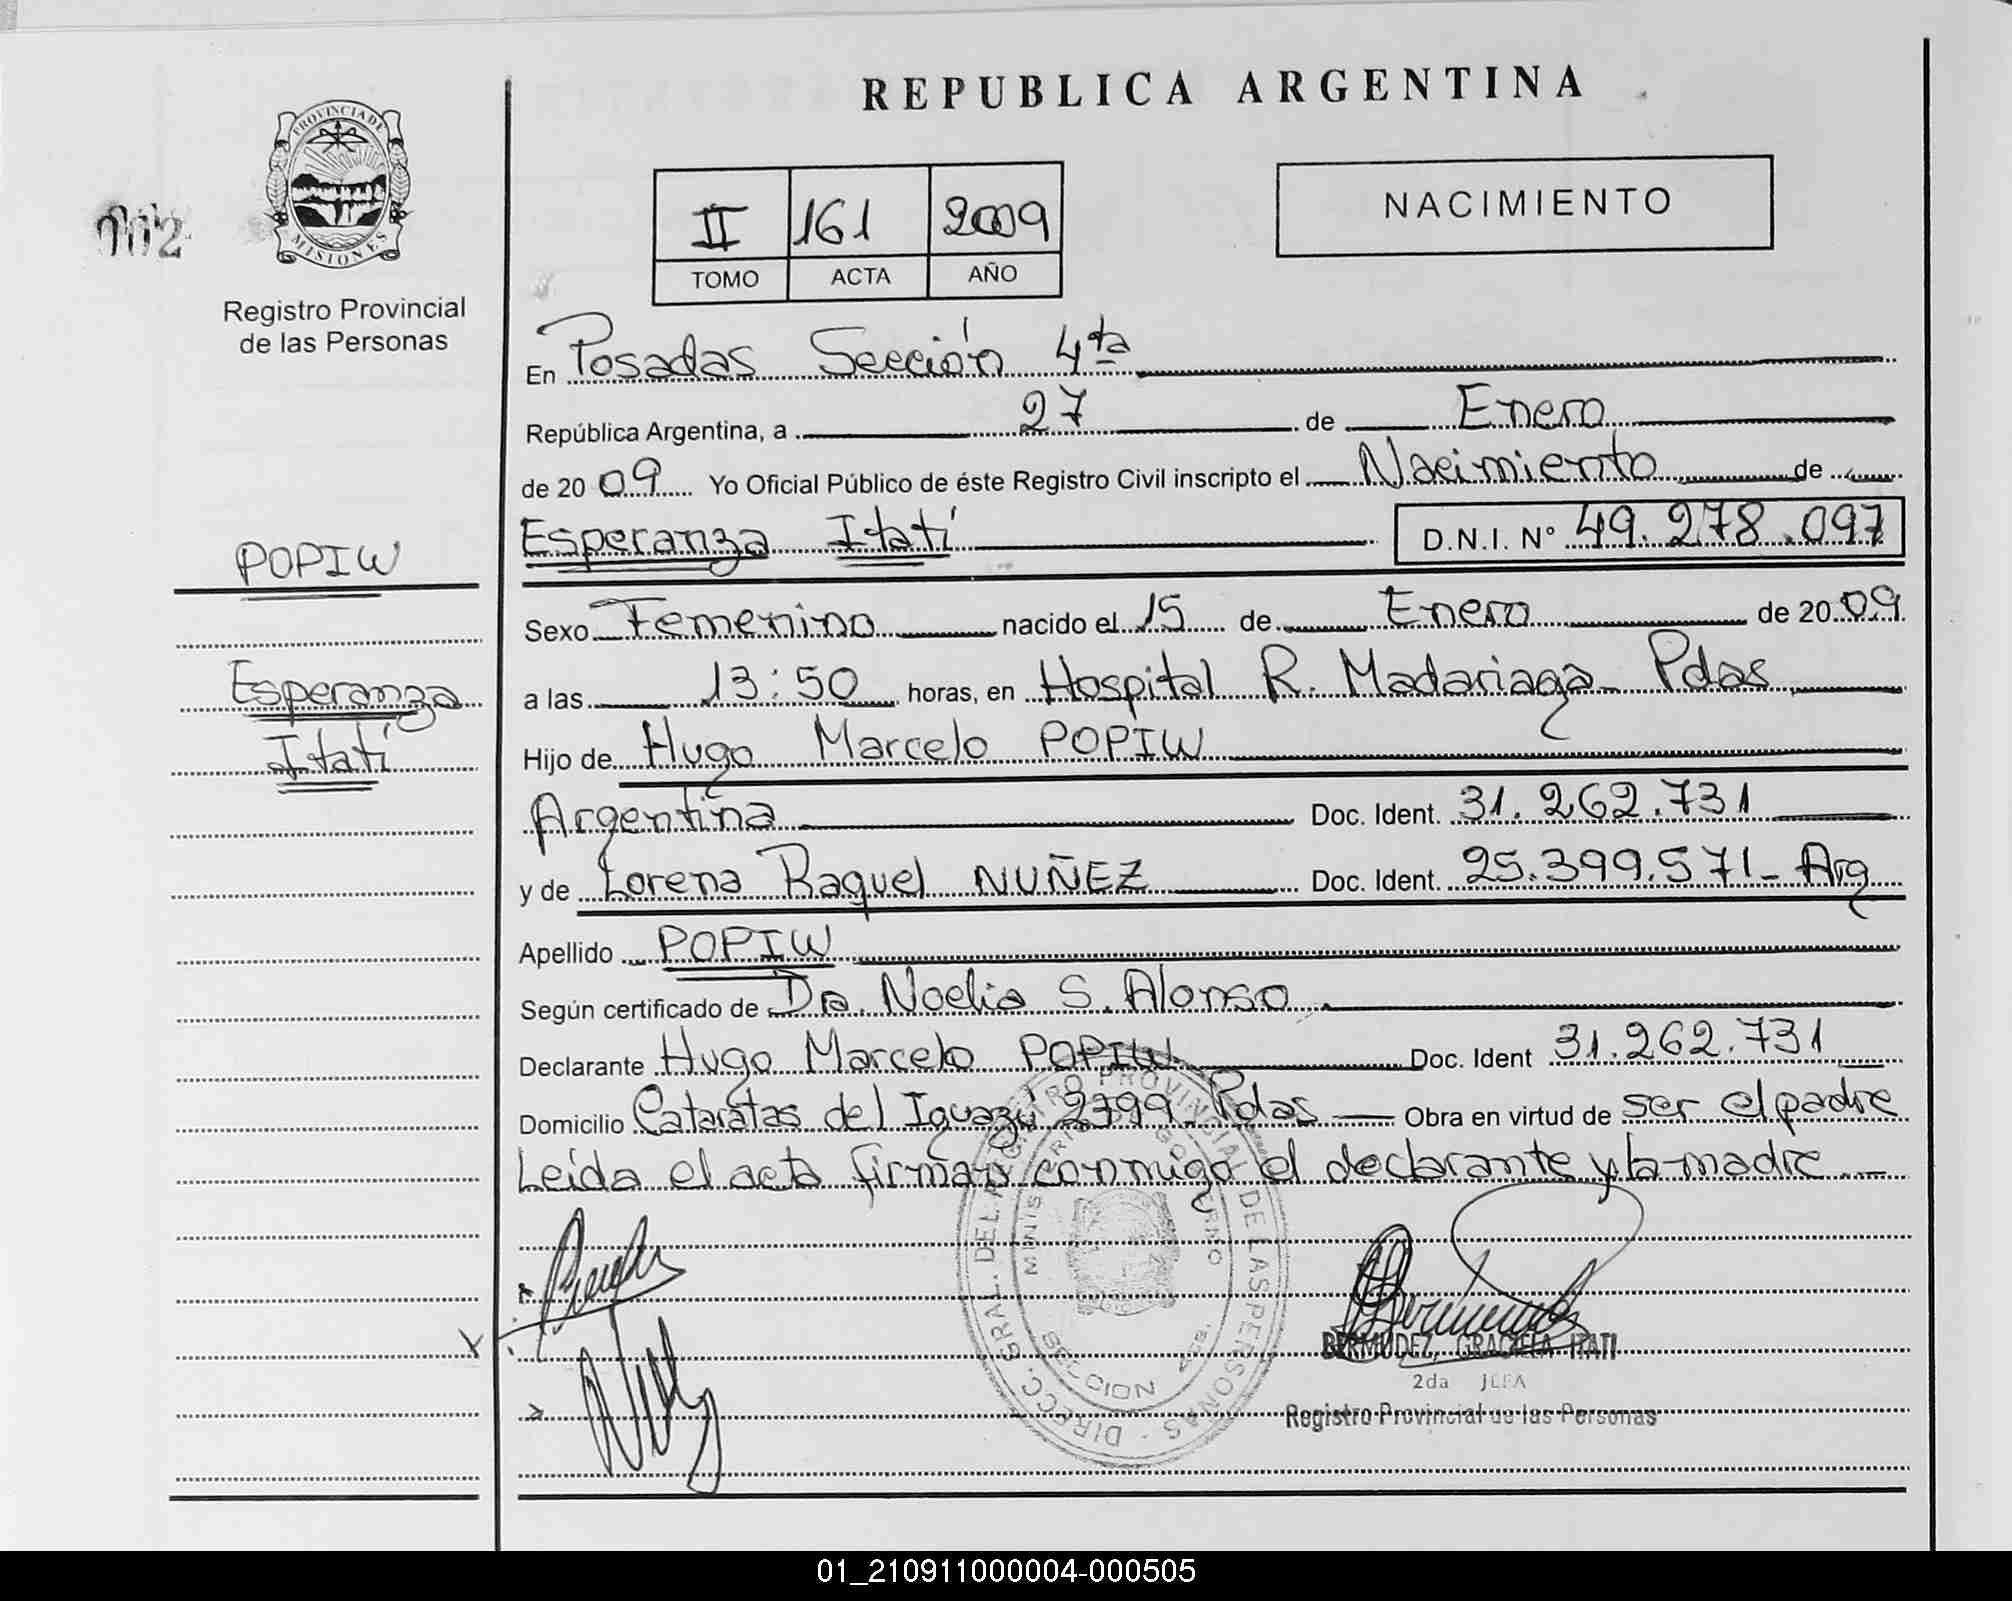 REPUBLICA ARGENTINA
PROVINCIA DE
MISIONES
Registro Provincial
de las Personas
II 161 2009
TOMO ACTA AÑO
NACIMIENTO
En Posadas Sección 4ta
República Argentina, a 27 de Enero
de 2009 Yo Oficial Público de éste Registro Civil inscripto el Nacimiento de
Esperanza Itatí D.N.I. Nº 49.278.097
POPIW
Esperanza
Itatí
Sexo Femenino nacido el 15 de Enero de 2009
a las 13:50 horas, en Hospital R. Madariaga Pdas
Hijo de Hugo Marcelo POPIW
Argentina Doc. Ident. 31.262.731
y de Lorena Raquel NUÑEZ Doc. Ident. 25.399.571- Arg
Apellido POPIW
Según certificado de Dra. Noelia S. Alonso
Declarante Hugo Marcelo POPIW Doc. Ident 31.262.731
Domicilio Cataratas del Iguazú 2799 Pdas Obra en virtud de ser el padre
Leída el acta firman conmigo el declarante y la madre
DIRECC. GRAL. DEL REGISTRO PROVINCIAL DE LAS PERSONAS
BERMUDEZ, GRACIELA ITATI
2da JEFA
Registro Provincial de las Personas
01_210911000004-000505